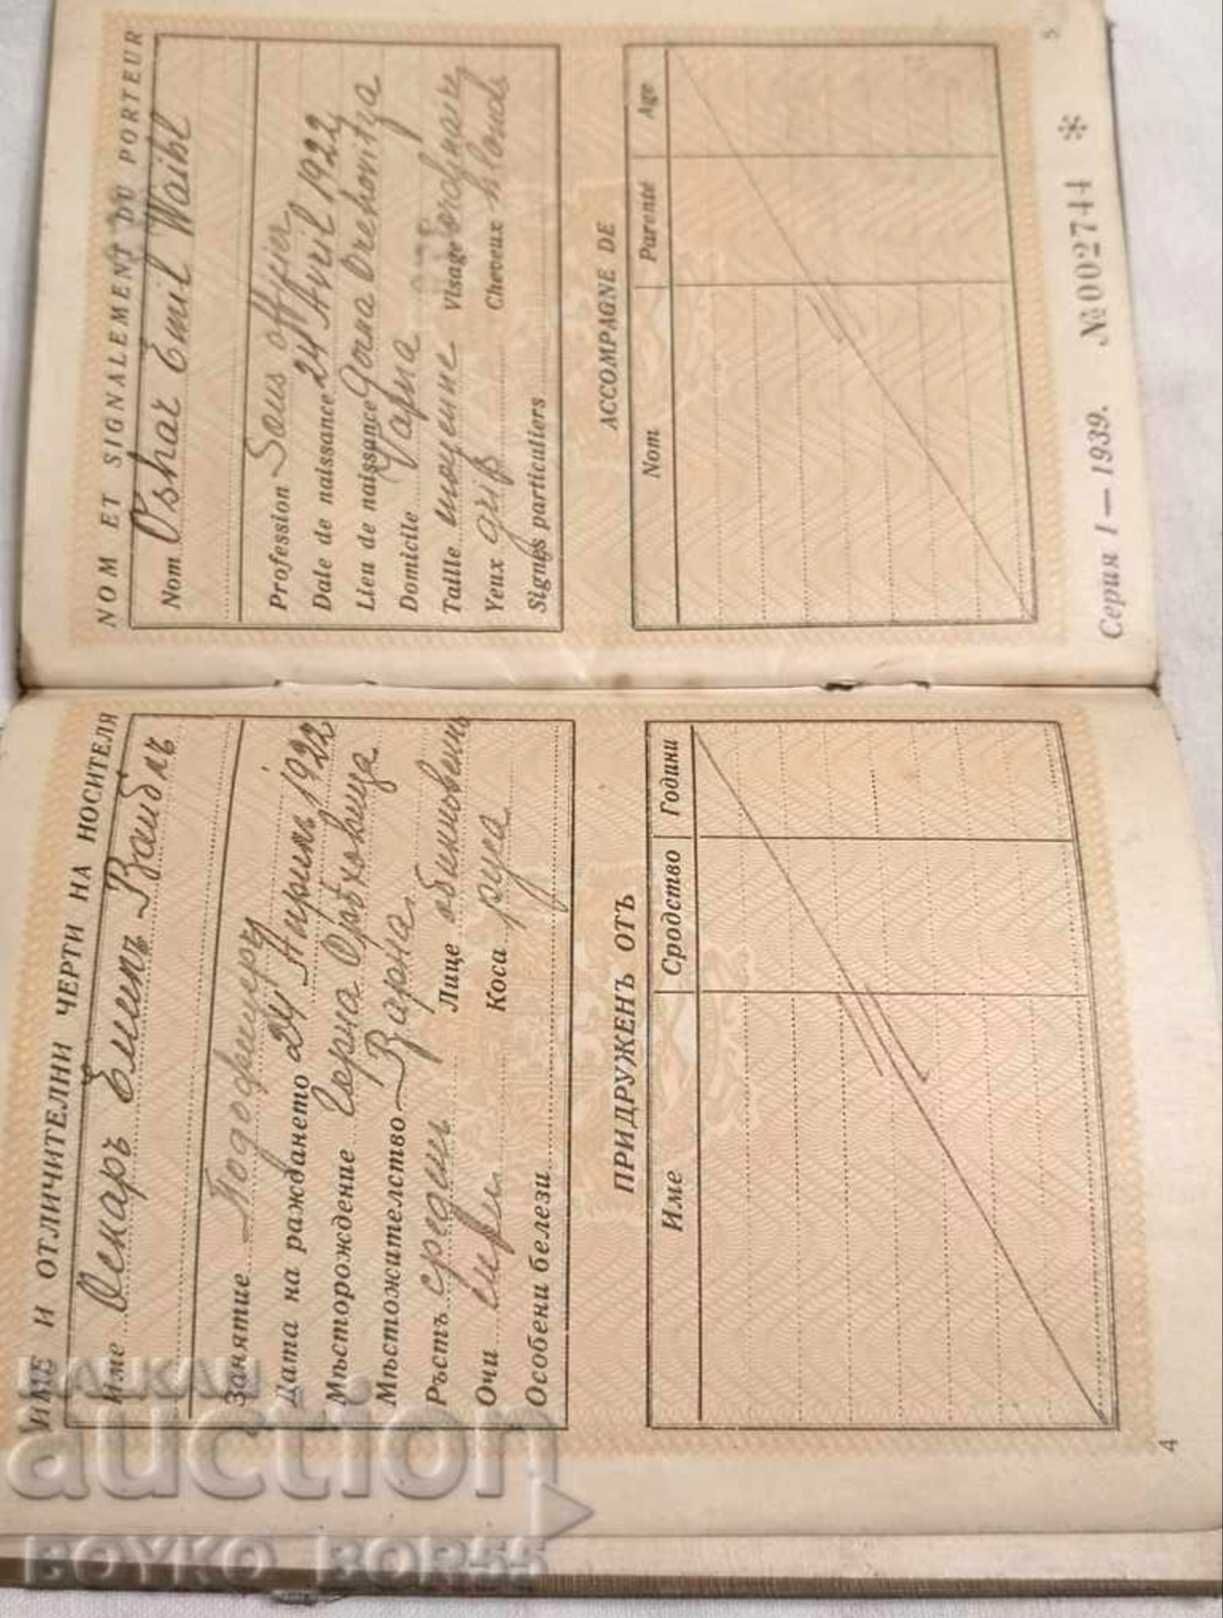 ИМЕ И ОТЛИЧИТЕЛНИ ЧЕРТИ НА НОСИТЕЛЯ
Име Оскаръ Емилъ Вайблъ
Занятие Подофицеръ
Дата на раждането 24 Априлъ 1922
Мѣсторождение Горна Орѣховица
Мѣстожителство Варна
Ръстъ среденъ Лице обикновенно
Очи сиви Коса руса
Особени белези
ПРИДРУЖЕНЪ ОТЪ
Име Сродство Години
4
NOM ET SIGNALEMENT DU PORTEUR
Nom Oskar Emil Waibl
Profession Sous officier
Date de naissance 24 Avril 1922
Lieu de naissance Gorna Orehovitza
Domicile Varna
Taille moyenne Visage ordinaire
Yeux gris Cheveux blonds
Signes particuliers
ACCOMPAGNE DE
Nom Parenté Age
Серия I — 1939. № 002744 *
5
BALKAN
auction
BOYKO BOR55